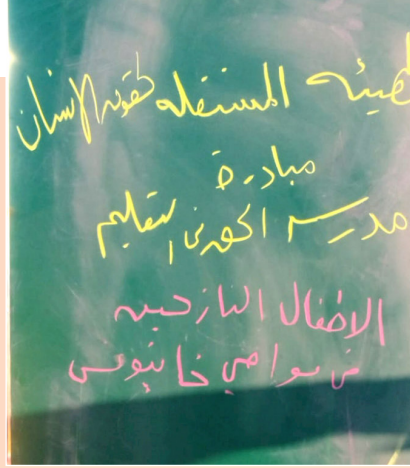 الهيئه المستقله لحقوق الانسان
مبادرة
مدرسه الحق في التعليم
الاطفال النازحين
في مواصي خانيونس